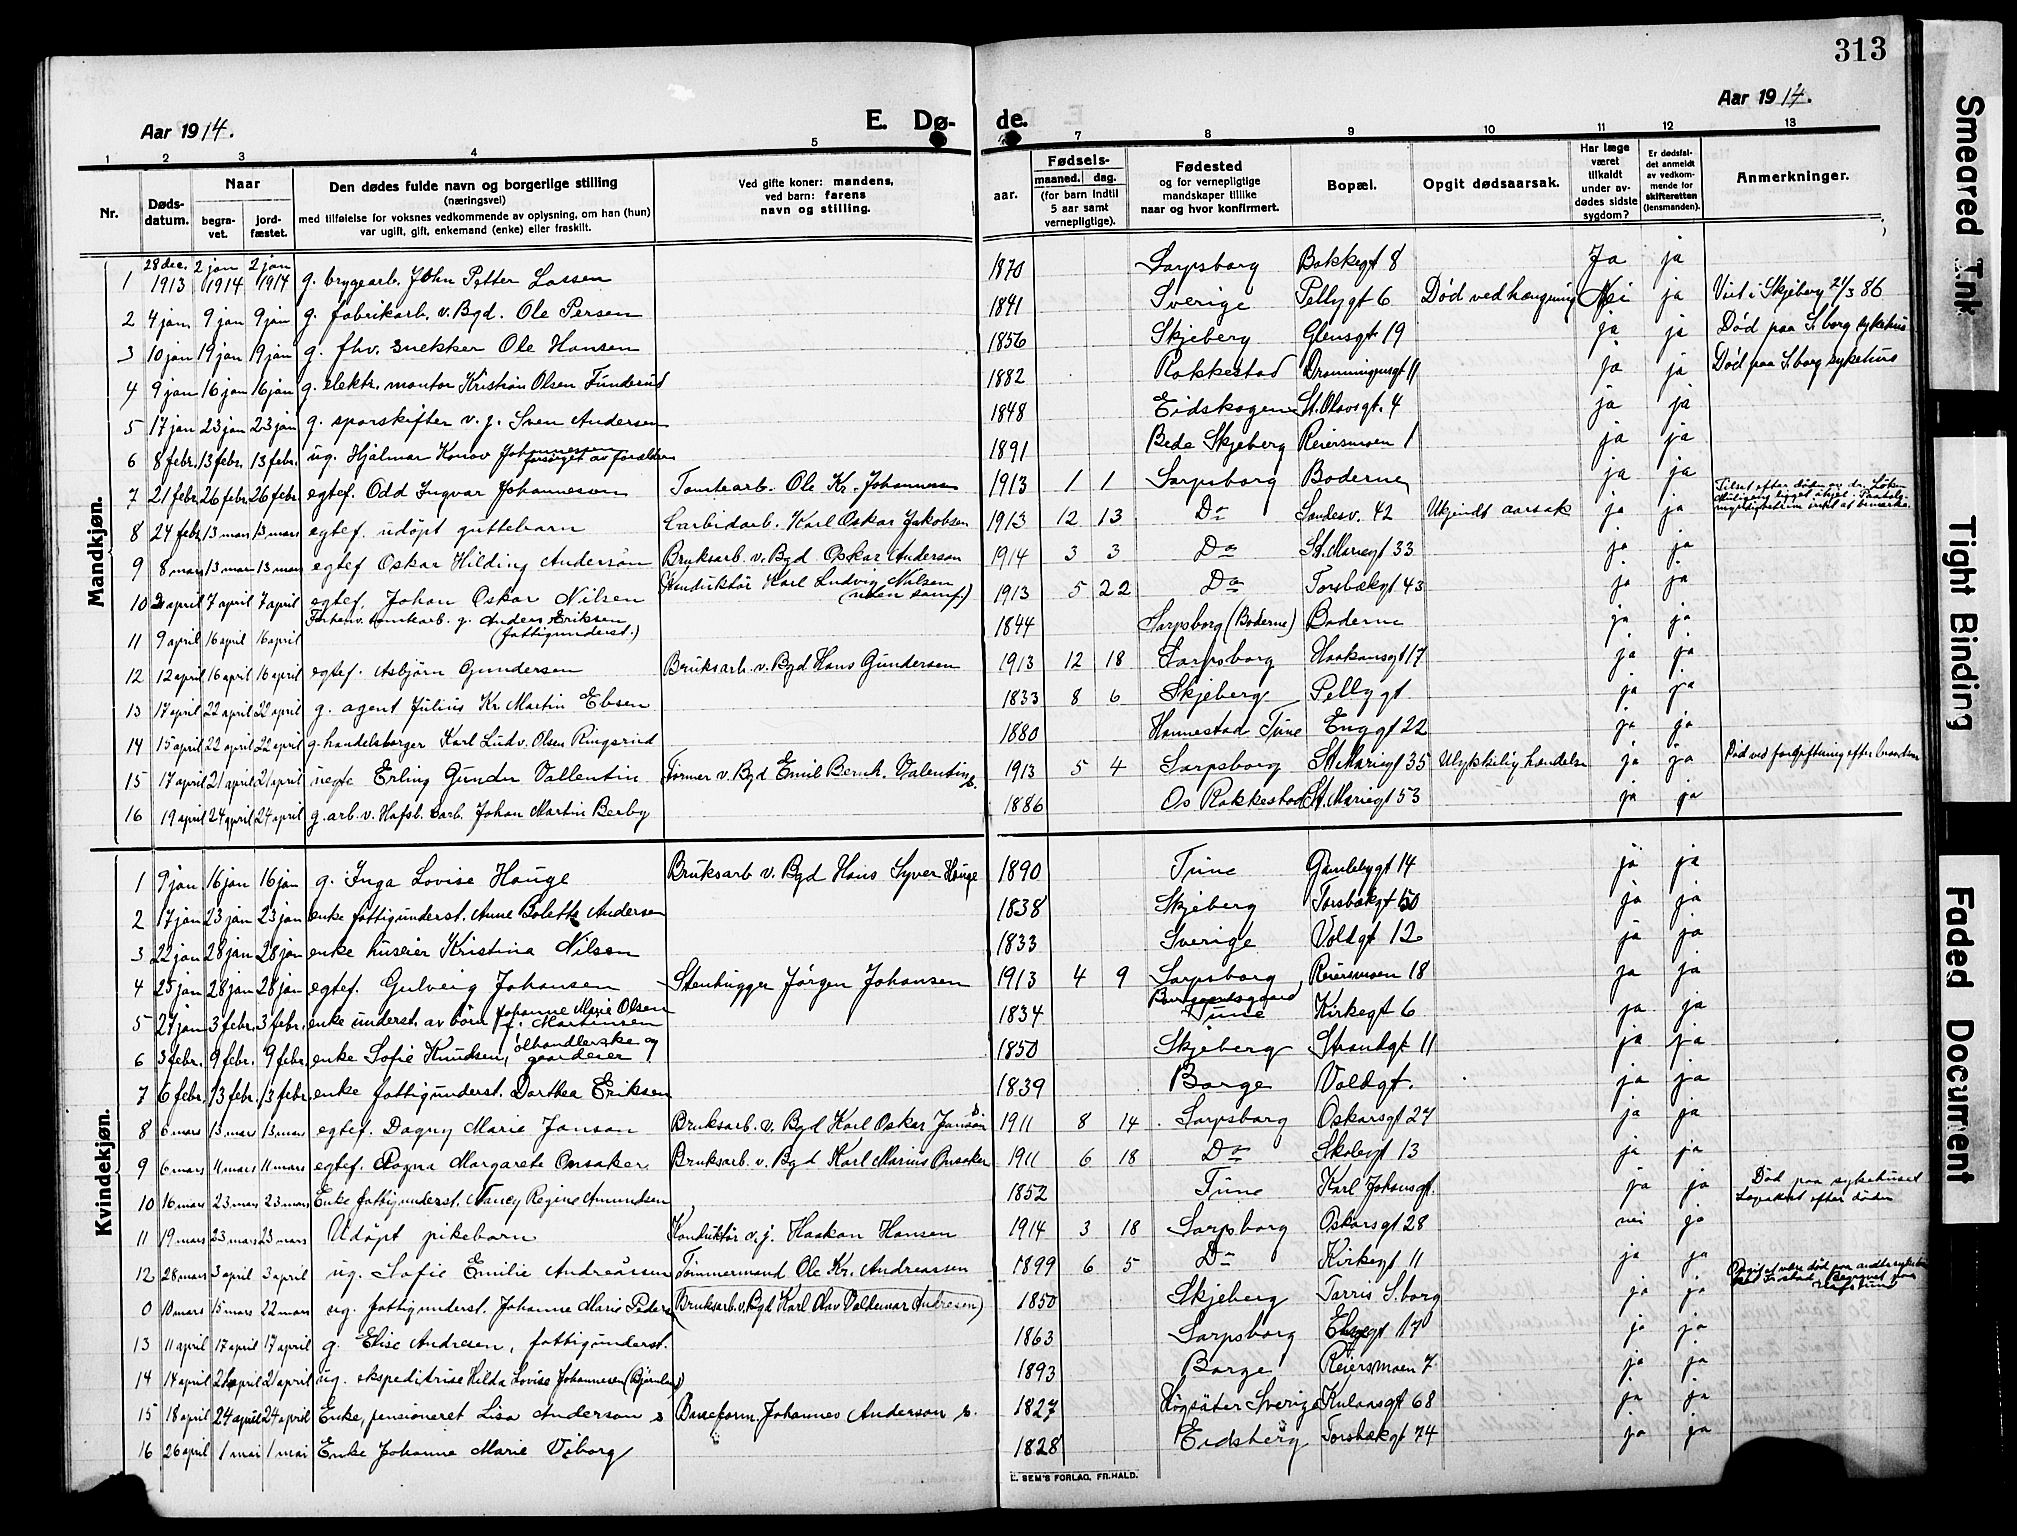 313
Aar 1914.
E. Dø-
de.
Aar 1914.
1 2 3 4 5 7 8 9 10 11 12 13
Nr.
Døds-
datum.
Naar
begra-
vet.
jord-
fæstet.
Den dødes fulde navn og borgerlige stilling
(næringsvei)
med tilføielse for voksnes vedkommende av oplysning, om han (hun)
var ugift, gift, enkemand (enke) eller fraskilt.
Ved gifte koner: mandens,
ved barn: farens
navn og stilling.
aar.
Fødsels-
maaned. dag.
(for barn indtil
5 aar samt
vernepligtige).
Fødested
og for vernepligtige
mandskaper tillike
naar og hvor konfirmert.
Bopæl.
Opgit dødsaarsak.
Har læge
været
tilkaldt
under av-
dødes sidste
sygdom?
Er dødsfal-
det anmeldt
av vedkom-
mende for
skifteretten
(lensmanden).
Anmerkninger.
Mandkjøn.
1 28 dec. 1913 2 jan 1914 2 jan 1914 g. bryggearb. John Petter Lassen 1870 Sarpsborg Bakkegt 8 Ja ja
2 4 jan 9 jan 9 jan g. fabrikarb. v. Bgd. Ole Persen 1841 Sverige Pellygt 6 Død ved hængning Nei ja Viet i Skjeberg 21/3 86
3 10 jan 19 jan 19 jan g. fhv. snekker Ole Hansen 1856 Skjeberg Glensgt 19 ja ja Død paa S.borg sykehus
4 9 jan 16 jan 16 jan g. elektr. montør Kristian Olsen Funderud 1882 Rakkestad Dronningensgt 11 ja ja Død paa S.borg sykehus
5 17 jan 23 jan 23 jan g. sporskifter v. j. Sven Andersen 1848 Eidskogen St. Olavsgt. 4 ja ja
6 8 febr. 13 febr. 13 febr. ug. Hjalmar Konov Johannessen forsørget av forældre 1891 Bede Skjeberg Reiersmoen 1 ja ja
7 21 febr 26 febr 26 febr egtef. Odd Ingvar Johannesen Tomtearb. Ole Kr. Johannesen 1913 1 1 Sarpsborg Boderne ja ja
8 24 febr 13 mars 13 mars egtef. udøpt guttebarn Carbidarb. Karl Oskar Jakobsen 1913 12 13 Do Sandesv. 42 Ukjendt aarsak ja ja Tilset efter døden av dr.
9 8 mars 13 mars 13 mars egtef Oskar Hilding Anderson Bruksarb. v. Bgd Oskar Anderson 1914 3 3 Do St. Mariegt 33 ja ja
10 2 april 7 april 7 april egtef. Johan Oskar Nilsen Konduktør Karl Ludvig Nilsen (uten samf) 1913 5 22 Do Torsbækgt 43 ja ja
11 9 april 16 april 16 april Forhenv. tomtearb. g. Anders Eriksen (fattigunderst.) 1844 Sarpsborg (Boderne) Boderne ja ja
12 12 april 16 april 16 april egtef. Asbjørn Gundersen Bruksarb. v. Bgd Hans Gundersen 1913 12 18 Sarpsborg Haakonsgt 17 ja ja
13 17 april 22 april 22 april g. agent Julius Kr. Martin Ebsen 1833 8 6 Skjeberg Pellygt ja ja
14 15 april 22 april 22 april g. handelsborger Karl Ludv. Olsen Ringsrud 1880 Hannestad Tune Enggt 22 ja ja
15 17 april 21 april 21 april uegte Erling Gunder Vallentin Former v. Bgd Emil Bernh. Valentin 1913 5 4 Sarpsborg St Mariegt 35 Ulykkelig hændelse ja ja Død ved forgiftning efter
16 19 april 24 april 24 april g. arb. v. Hafsl. Johan Martin Berby 1886 Os Rakkestad St. Mariegt 53 ja ja
Kvindekjøn.
1 9 jan 16 jan 16 jan g. Inga Lovise Hauge Bruksarb v. Bgd Hans Syver Hauge 1890 Tune Gamlebygt 14 ja ja
2 17 jan 23 jan 23 jan enke fattigunderst. Anne Bolette Andersen 1838 Skjeberg Torsbækgt 50 ja ja
3 22 jan 28 jan 28 jan enke huseier Kristina Nilsen 1833 Sverige Voldgt 12 ja ja
4 25 jan 28 jan 28 jan egtef. Gulveig Johansen Stenhugger Jørgen Johansen 1913 4 9 Sarpsborg Reiersmoen 18 ja ja
5 27 jan 3 febr. 3 febr. enke underst. av børn Johanne Marie Olsen f. Martinsen 1834 Borregaardsgaard Tune Kirkegt 6 ja ja
6 3 febr. 9 febr. 9 febr enke Sofie Knudsen, ølhandlerske og gaardeier 1850 Skjeberg Strandgt 11 ja ja
7 6 febr. 13 febr. 13 febr. enke fattigunderst. Dorthea Eriksen 1839 Borge Voldgt. ja ja
8 6 mars 13 mars 13 mars egtef. Dagny Marie Janson Bruksarb. v. Bgd Karl Oskar Janson 1911 8 14 Sarpsborg Oskarsgt 27 ja ja
9 6 mars 11 mars 11 mars egtef. Ragna Margarete Onsaker Bruksarb. v. Bgd Karl Marius Onsaker 1911 6 18 Do Skolegt 13 ja ja
10 16 mars 23 mars 23 mars Enke fattigunderst. Nancy Regine Amundsen 1852 Tune Karl Johansgt. ja ja Død paa sykehuset efter døden
11 19 mars 23 mars 23 mars Udøpt pikebarn Konduktør v. j. Haakon Hansen 1914 3 18 Sarpsborg Oskarsgt 28 nei ja
12 28 mars 3 april 3 april ug. Sofie Emilie Andreassen Tømmermand Ole Kr. Andreassen 1899 6 5 Do Kirkegt 11 ja ja
0 10 mars 15 mars 22 mars ug. fattigunderst. Johanne Marie Peders (Bruksarb. v. Bgd Karl Olav Valdemar Andresen) 1850 Skjeberg Tarris S.borg ja ja Opgit at være død paa
13 11 april 17 april 17 april g. Elise Andresen, fattigunderst. 1863 Sarpsborg 17 ja ja
14 14 april 21 april 21 april ug. ekspeditrise Hilda Lovise Johannesen 1893 Borge Reiersmoen 7 ja ja
15 18 april 24 april 24 april Enke, pensioneret Lisa Anderson Baseform. Johannes Anderson 1827 Högsäter Sverige Kulaasgt 68 ja ja
16 26 april 1 mai 1 mai Enke Johanne Marie Viborg 1828 Eidsberg Torsbækgt 74 ja ja
E. SEM'S FORLAG, FR.HALD.
Smeared Ink
Tight Binding
Faded Document